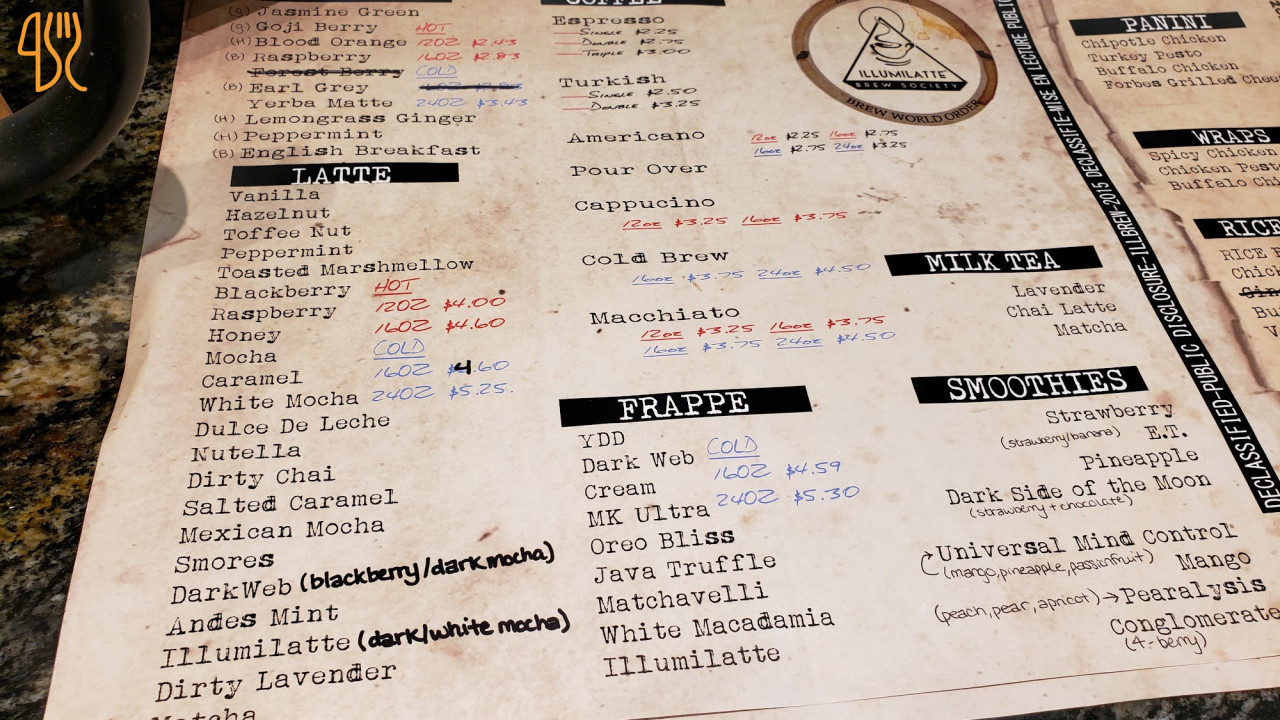 (g) Jasmine Green
(g) Goji Berry HOT
(H) Blood Orange 12OZ $2.43
(B) Raspberry 16OZ $2.83
Forest Berry COLD
(B) Earl Grey
Yerba Matte 24OZ $3.43
(H) Lemongrass Ginger
(H) Peppermint
(B) English Breakfast
LATTE
Vanilla
Hazelnut
Toffee Nut
Peppermint
Toasted Marshmellow
Blackberry HOT
Raspberry 12OZ $4.00
Honey 16OZ $4.60
Mocha COLD
Caramel 16OZ $4.60
White Mocha 24OZ $5.25.
Dulce De Leche
Nutella
Dirty Chai
Salted Caramel
Mexican Mocha
Smores
DarkWeb (blackberry/dark mocha)
Andes Mint
Illumilatte (dark/white mocha)
Dirty Lavender
Matcha
COFFEE
Espresso
Single $2.25
Double $2.75
Triple $3.00
Turkish
Single $2.50
Double $3.25
Americano 12oz $2.25 16oz $2.75
16oz $2.75 24oz $3.25
Pour Over
Cappucino
12oz $3.25 16oz $3.75
Cold Brew
16oz $3.75 24oz $4.50
Macchiato
12oz $3.25 16oz $3.75
16oz $3.75 24oz $4.50
FRAPPE
YDD
Dark Web COLD
Cream 16OZ $4.59
MK Ultra 24OZ $5.30
Oreo Bliss
Java Truffle
Matchavelli
White Macadamia
Illumilatte
ILLUMILATTE
BREW SOCIETY
BREW WORLD ORDER
MILK TEA
Lavender
Chai Latte
Matcha
SMOOTHIES
Strawberry
(strawberry/banana) E.T.
Pineapple
Dark Side of the Moon
(strawberry + chocolate)
Universal Mind Control
(mango, pineapple, passionfruit) Mango
(peach, pear, apricot) → Pearalysis
Conglomerate
(4-berry)
DECLASSIFIED-PUBLIC DISCLOSURE-ILLBREW-2015 DECLASSIFIE-MISE EN LECTURE PUBLI
PANINI
Chipotle Chicken
Turkey Pesto
Buffalo Chicken
Forbes Grilled Chee
WRAPS
Spicy Chicken
Chicken Pest
Buffalo Chi
RICE
RICE
Chick
Bu
V